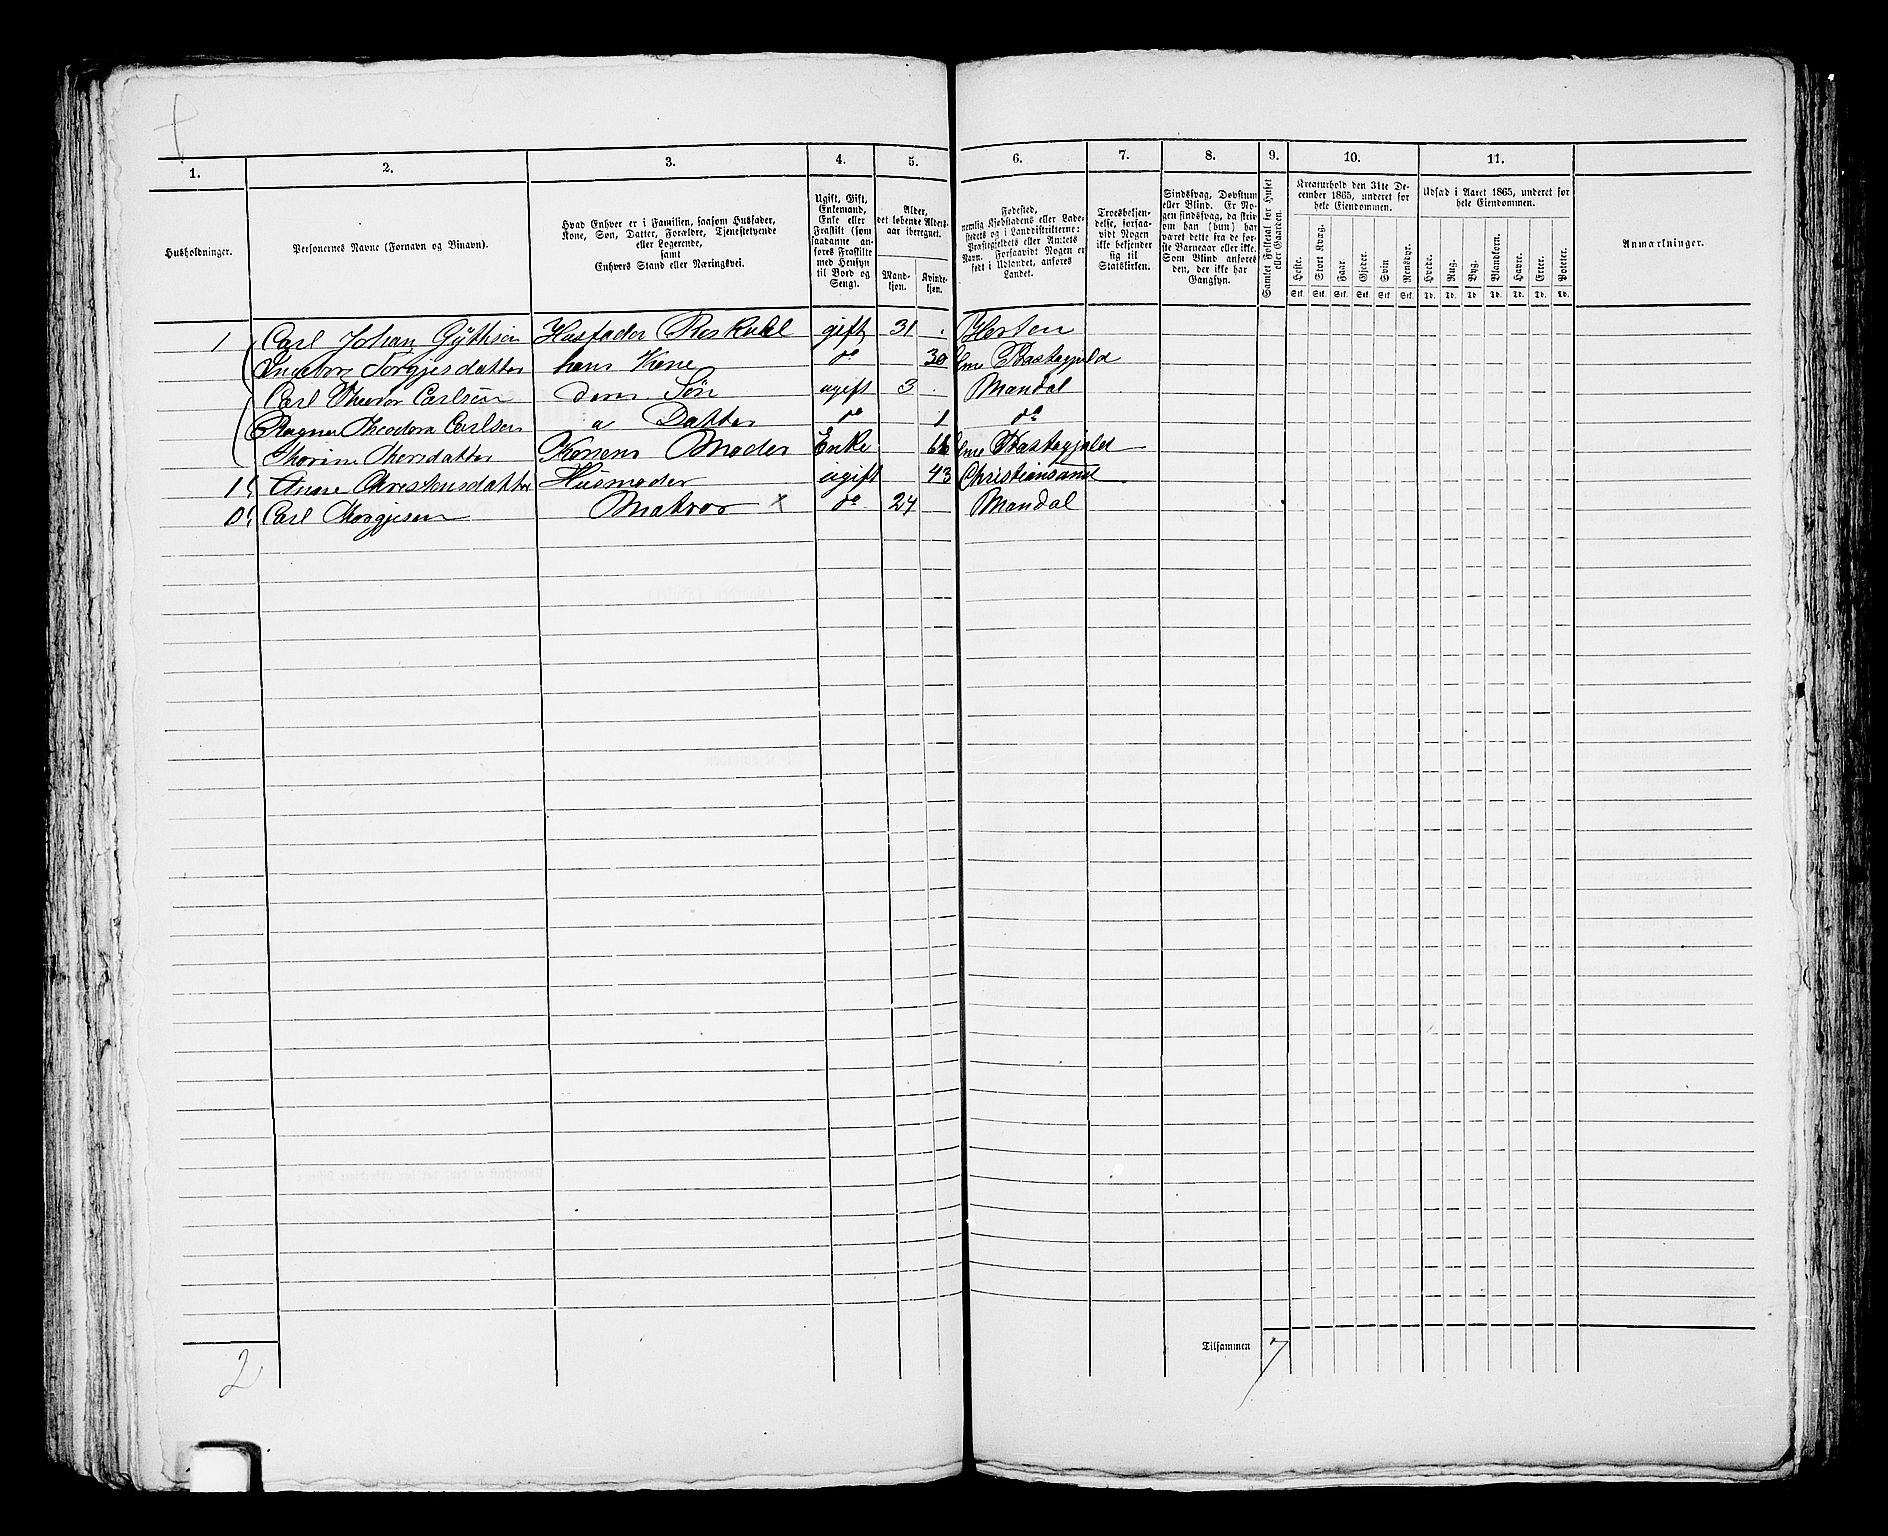 1. 2. 3. 4. 5. 6. 7. 8. 9. 10. 11.
Husholdninger.
Personernes Navne (Fornavn og Binavn).
Hvad Enhver er i Familien, saasom Husfader,
Kone, Søn, Datter, Forældre, Tjenestetyende
eller Logerende,
samt
Enhvers Stand eller Næringsvei.
Ugift, Gift,
Enkemand,
Enke eller
Fraskilt (som
saadanne an-
føres Fraskilte
med Hensyn
til Bord og
Seng).
Alder,
det løbende Alders-
aar iberegnet.
Mand-
kjøn.
Kvinde-
kjøn.
Fødested,
nemlig Kjøbstadens eller Lade-
stedets og i Landdistrikterne:
Præstegjeldets eller Amtets
Navn. Forsaavidt Nogen er
født i Udlandet, anføres
Landet.
Troesbekjen-
delse, forsaa-
vidt Nogen
ikke bekjender
sig til
Statskirken.
Sindssvag, Døvstum
eller Blind. Er No-
gen sindssvag, da skriv
om han (hun) har
været dette fra de før-
ste Barneaar eller ikke.
Som Blind anføres
den, der ikke har
Gangsyn.
Samlet Folketal for Huset
eller Gaarden.
Kreaturhold den 31te De-
cember 1865, underet for
hele Eiendommen.
Heste. Stort Kvæg. Faar. Gjeder. Svin Rensdyr.
Stk. Stk. Stk. Stk. Stk. Stk.
Udsæd i Aaret 1865, underet for
hele Eiendommen.
Hvede. Rug. Byg. Blandkorn. Havre. Erter. Poteter.
Td. Td. Td. Td. Td. Td. Td.
Anmærkninger.
1 Carl Johan Gÿthsen Husfader gift 31 Horten
Ingeborg Torgjesdatter hans Kone do 30 Præstegjeld
Carl Theodor Carlsen deres Søn ugift 3 Mandal
Ragna Theodora Carlsen " Datter do 1 do
Konens Moder Enke Præstegjeld
1 Anne Christensdatter Husmoder ugift 43 Christiansand
0 Carl Thorgjesen Matros x do 24 Mandal
Tilsammen 7
2